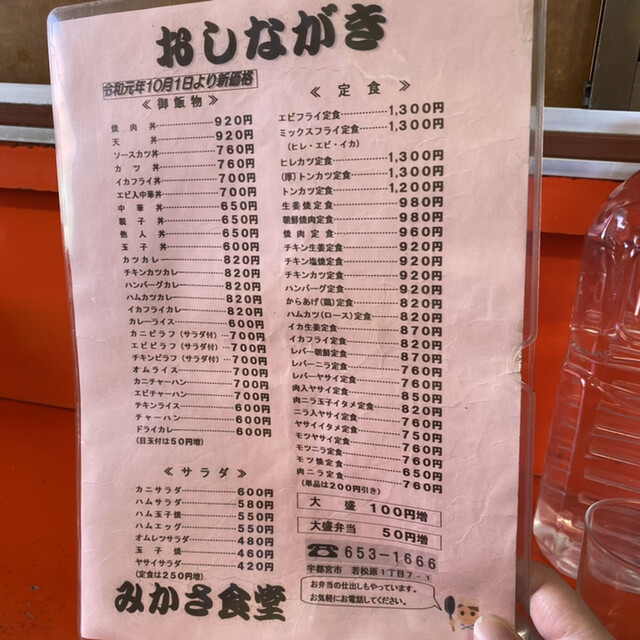 おしながき
令和元年10月1日より新価格
≪ 御飯物 ≫
焼肉丼 920円
天丼 920円
ソースカツ丼 760円
カツ丼 760円
イカフライ丼 700円
エビ入中華丼 700円
中華丼 650円
親子丼 650円
他人丼 650円
玉子丼 600円
カツカレー 820円
チキンカツカレー 820円
ハンバーグカレー 820円
ハムカツカレー 820円
イカフライカレー 820円
カレーライス 600円
カニピラフ(サラダ付) 700円
エビピラフ(サラダ付) 700円
チキンピラフ(サラダ付) 700円
オムライス 700円
カニチャーハン 700円
エビチャーハン 700円
チキンライス 600円
チャーハン 600円
ドライカレー 600円
(目玉付は50円増)
≪ サラダ ≫
カニサラダ 600円
ハムサラダ 580円
ハム玉子焼 550円
ハムエッグ 550円
オムレツサラダ 480円
玉子焼 460円
ヤサイサラダ 420円
(定食は250円増)
みかさ食堂
≪ 定食 ≫
エビフライ定食 1,300円
ミックスフライ定食 1,300円
(ヒレ・エビ・イカ)
ヒレカツ定食 1,300円
(厚)トンカツ定食 1,300円
トンカツ定食 1,200円
生姜焼定食 980円
朝鮮焼肉定食 980円
焼肉定食 960円
チキン生姜定食 920円
チキン塩焼定食 920円
チキンカツ定食 920円
ハンバーグ定食 920円
からあげ(鶏)定食 820円
ハムカツ(ロース)定食 820円
イカ生姜定食 870円
イカフライ定食 820円
レバー朝鮮定食 870円
レバーニラ定食 760円
レバーヤサイ定食 760円
肉入ヤサイ定食 850円
肉ニラ玉子イタメ定食 820円
ニラ入ヤサイ定食 760円
ヤサイイタメ定食 750円
モツヤサイ定食 760円
モツニラ定食 760円
モツ焼定食 650円
肉ニラ定食 760円
(単品は200円引き)
大盛 100円増
大盛弁当 50円増
☎653-1666
宇都宮市 若松原1丁目7-1
お弁当の仕出しもやっています。
お気軽にお電話してください。